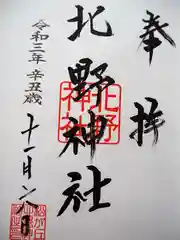 奉拝
北野神社
北野
神社
令和三年 辛丑歳
十一月六日